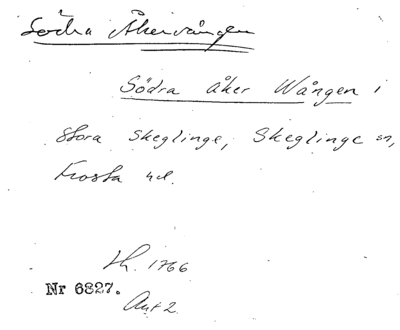 Södra Åkervången
Södra åker Wången i
Stora Skeglinge, Skeglinge sn,
Frosta hd.
Lh. 1766
Nr 6827.
Akt 2.